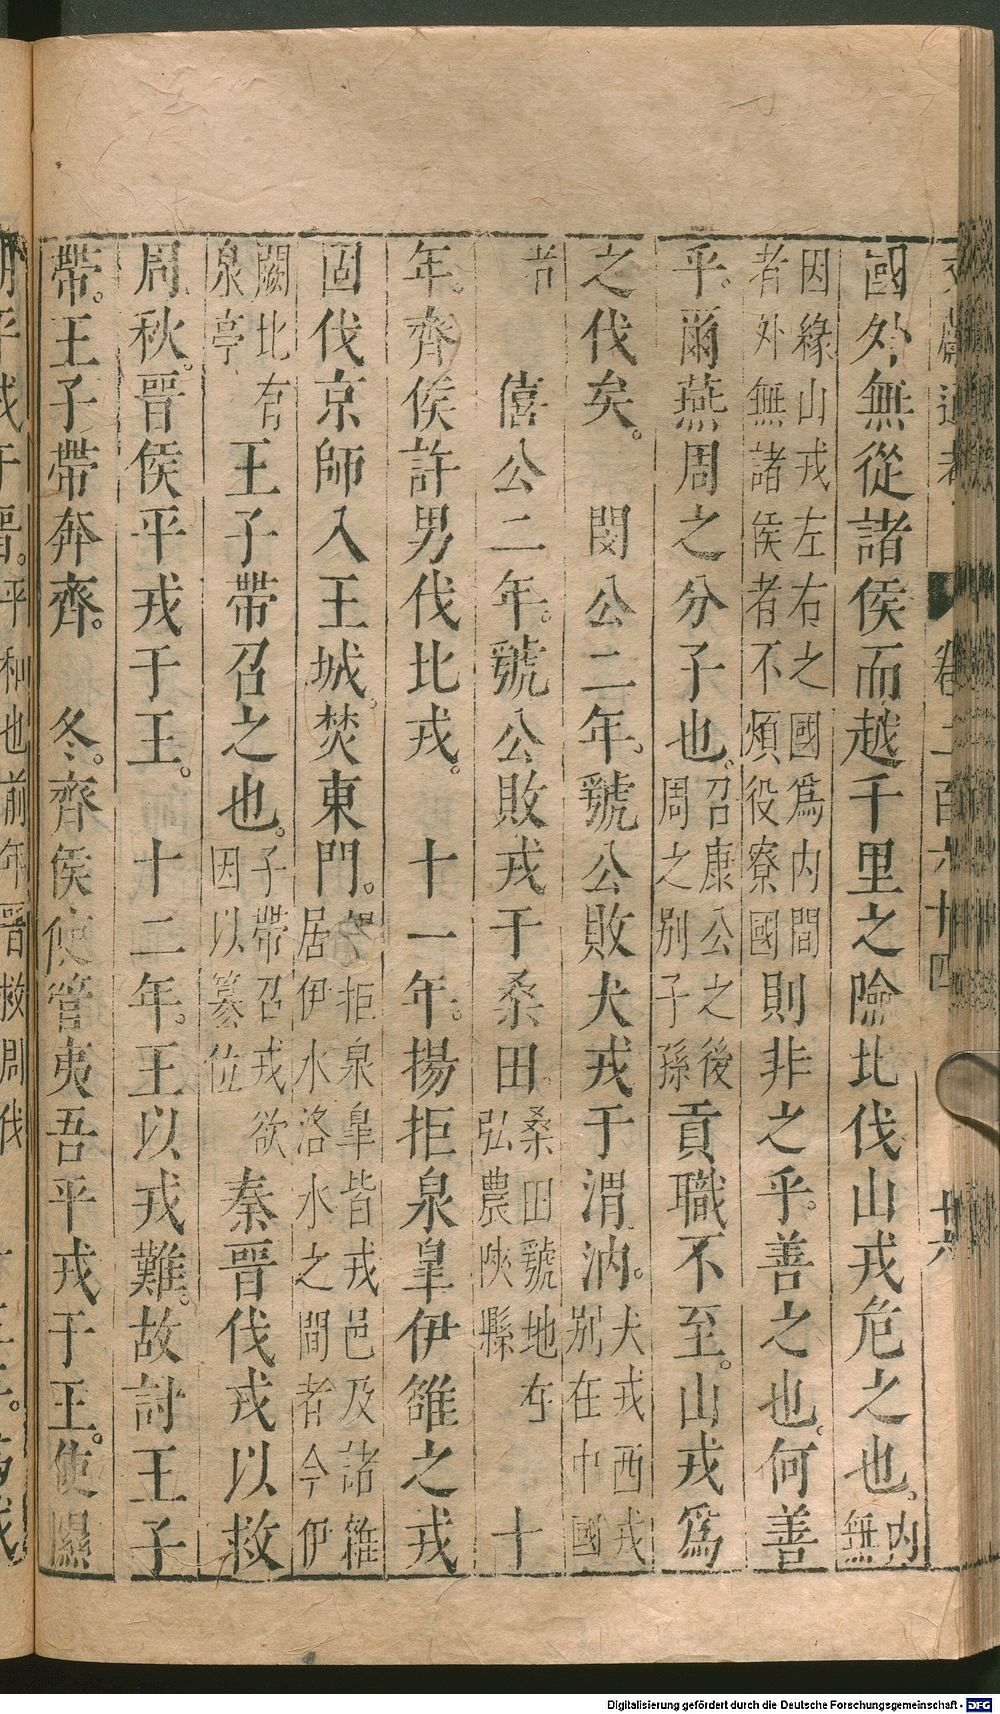 文獻通考 卷二百六十四 廿六
國外無從諸侯而越千里之險北伐山戎危之也內無
因緣山戎左右之國爲內間者外無諸侯者不煩役寮國則非之乎善之也何善
乎爾燕周之分子也召康公之後周之別子孫貢職不至山戎爲
之伐矣 閔公二年虢公敗犬戎于渭汭犬戎西戎別在中國
者 僖公二年虢公敗戎于桑田桑田虢地在弘農陝縣 十
年齊侯許男伐北戎 十一年揚拒泉皐伊雒之戎
同伐京師入王城焚東門揚拒泉皐皆戎邑及諸雜居伊水洛水之間者今伊
闕北有泉亭王子帶召之也子帶召戎欲因以篡位秦晉伐戎以救
周秋晉侯平戎于王 十二年王以戎難故討王子
帶王子帶奔齊 冬齊侯使管夷吾平戎于王使隰
朋平戎于晉平和也前年晉救周伐
Digitalisierung gefördert durch die Deutsche Forschungsgemeinschaft - DFG